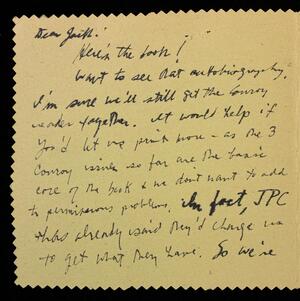 Dear Jack:
Here's the book!
Want to see that autobiography.
I'm sure we'll still get the Conroy
reader together. It would help if
you'd let me print more - as the 3
Conroy issues so far are the basic
core of the book & we don't want to add
to permissions problems. In fact, JPC
has already said they'd charge us
to get what they have. So we're